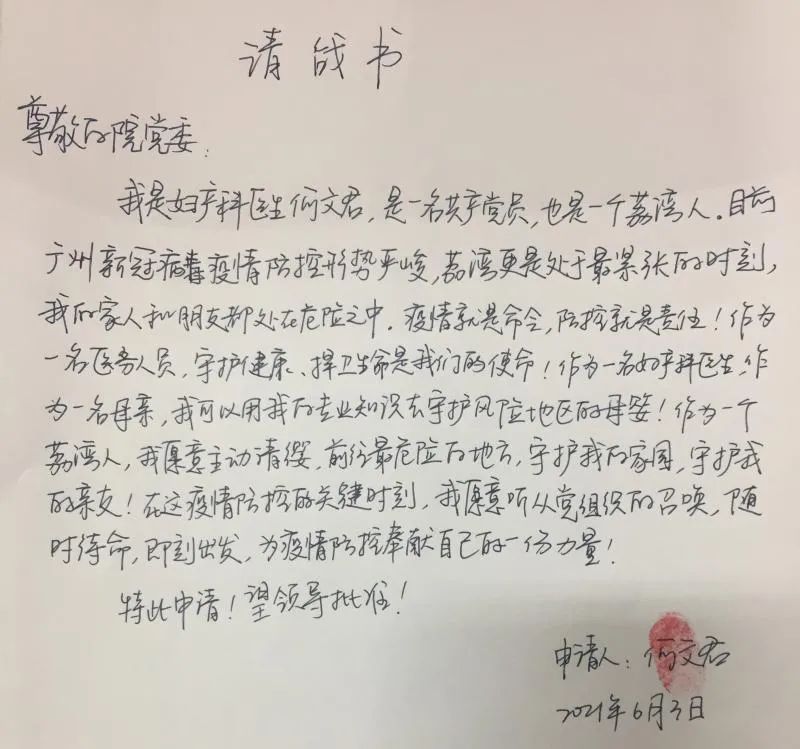 请战书
尊敬的院党委：
我是妇产科医生何文君，是一名共产党员，也是一个荔湾人。目前
广州新冠病毒疫情防控形势严峻，荔湾更是处于最紧张的时刻，
我的家人和朋友都处在危险之中。疫情就是命令，防控就是责任！作为
一名医务人员，守护健康、捍卫生命是我们的使命！作为一名妇产科医生，作
为一名母亲，我可以用我的专业知识去守护风险地区的母婴！作为一个
荔湾人，我愿意主动请缨，前往最危险的地方，守护我的家园，守护我
的亲友！在这疫情防控的关键时刻，我愿意听从党组织的召唤，随
时待命，即刻出发，为疫情防控奉献自己的一份力量！
特此申请！望领导批准！
申请人：何文君
2021年6月3日